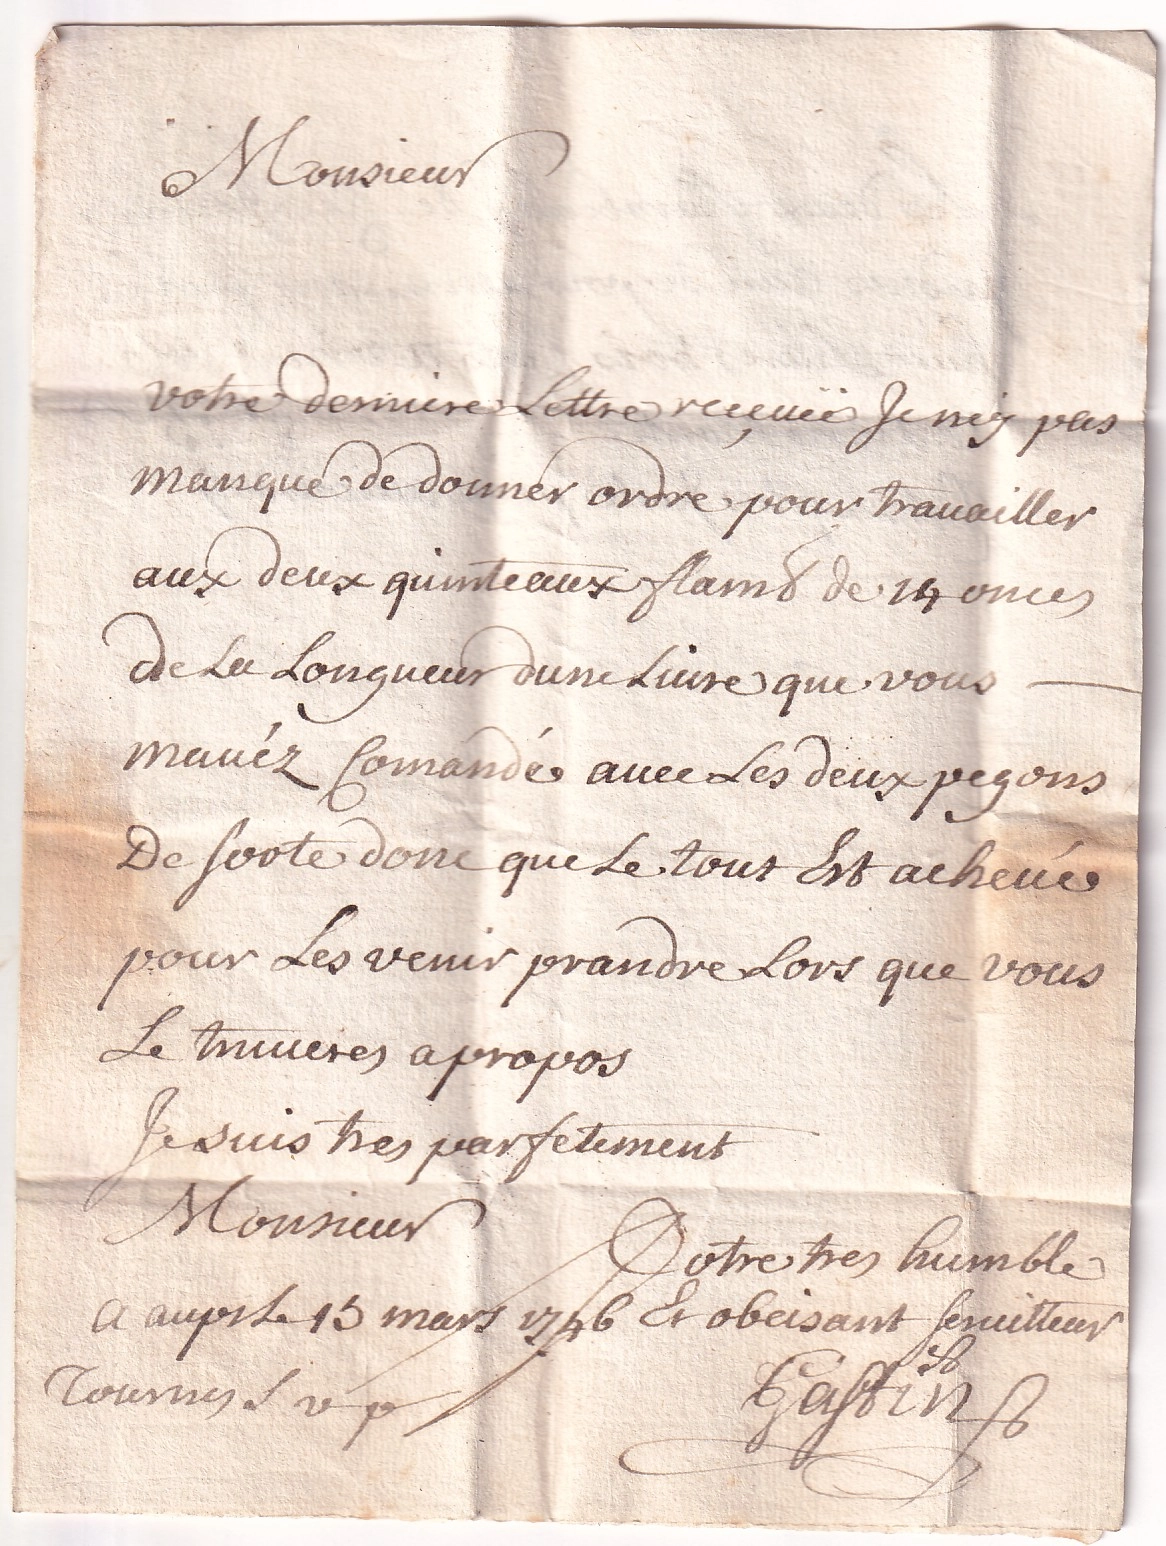 Monsieur
votre derniere Lettre reçeuë Je n'ey pas
manqué de donner ordre pour trauailler
aux deux quinteaux de 14 onces
de La Longueur dune Liure que vous
mauéz Comandé auec Les deux pegons
De sorte donc que Le tout Est acheué
pour Les venir prandre Lors que vous
Le truueres a propos
Je suis tres parfetement
Monsieur
Votre tres humble
a aups Le 15 mars 1746 Et obeisant seruitteur
Tournes s v p
Gastin